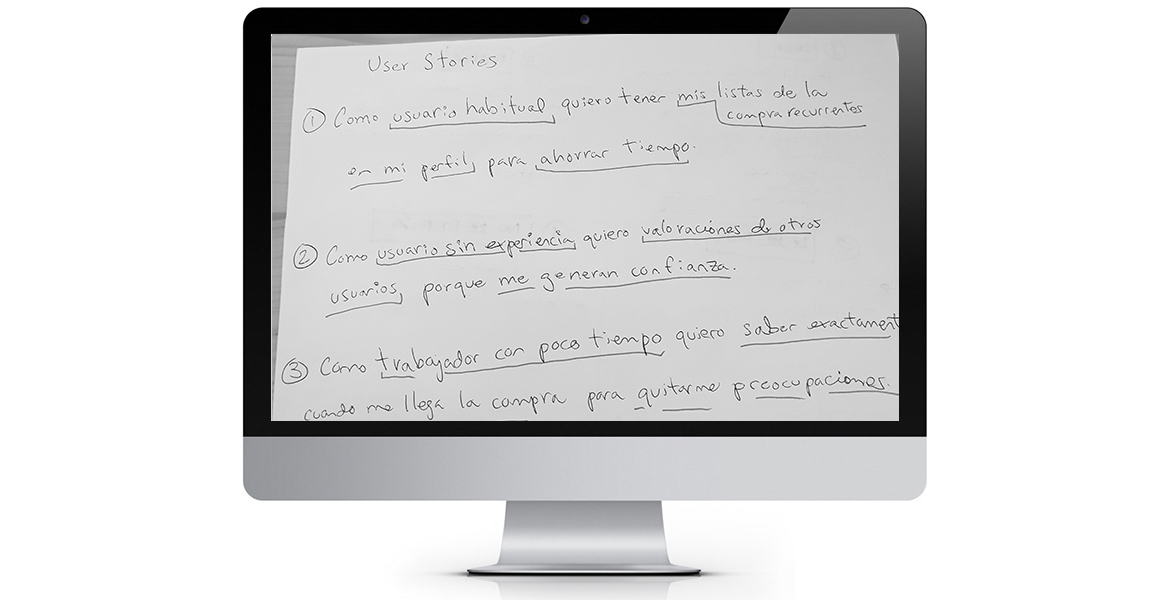 User Stories
① Como usuario habitual, quiero tener mis listas de la
compra recurrentes
en mi perfil, para ahorrar tiempo.
② Como usuario sin experiencia, quiero valoraciones de otros
usuarios, porque me generan confianza.
③ Como trabajador con poco tiempo quiero saber exactament
cuando me llega la compra para quitarme preocupaciones.